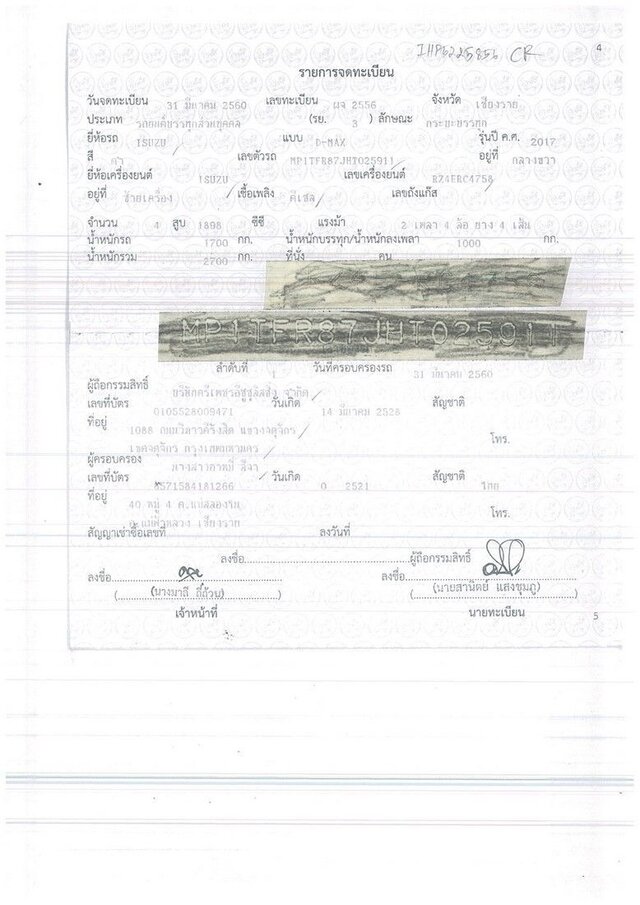 IHP6225856 CR 4
รายการจดทะเบียน
วันจดทะเบียน 31 มีนาคม 2560 เลขทะเบียน ผจ 2556 จังหวัด เชียงราย
ประเภท รถยนต์บรรทุกส่วนบุคคล (รย. 3 ) ลักษณะ กระบะบรรทุก
ยี่ห้อรถ ISUZU แบบ D-MAX รุ่นปี ค.ศ. 2017
สี เลขตัวรถ MP1TFR87JHT025011 อยู่ที่ กลางขวา
ยี่ห้อเครื่องยนต์ ISUZU เลขเครื่องยนต์ RZ4ERC4758
อยู่ที่ ซ้ายเครื่อง เชื้อเพลิง ดีเซล เลขถังแก๊ส
จำนวน 4 สูบ 1898 ซีซี แรงม้า 2 เพลา 4 ล้อ ยาง 4 เส้น
น้ำหนักรถ 1700 กก. น้ำหนักบรรทุก/น้ำหนักลงเพลา 1000 กก.
น้ำหนักรวม 2700 กก. ที่นั่ง คน
MP1TFR87JHT025011
ลำดับที่ 1 วันที่ครอบครองรถ 31 มีนาคม 2560
ผู้ถือกรรมสิทธิ์ บริษัทตรีเพชรอีซูซุลิสซิ่ง จำกัด
เลขที่บัตร 0105528009471 วันเกิด 14 มีนาคม 2528 สัญชาติ
ที่อยู่ 1088 ถนนวิภาวดีรังสิต แขวงจตุจักร
เขตจตุจักร กรุงเทพมหานคร โทร.
ผู้ครอบครอง นางสาวอาหมี่
เลขที่บัตร 571584181266 วันเกิด 0 2521 สัญชาติ ไทย
ที่อยู่ 40 หมู่ 4 ต.แม่สลองใน
อ.แม่ฟ้าหลวง เชียงราย โทร.
สัญญาเช่าซื้อเลขที่ ลงวันที่
ลงชื่อ ผู้ถือกรรมสิทธิ์
ลงชื่อ ลงชื่อ
(นางมาลี ถี่ถ้วน) (นายสานิตย์ แสงชุมภู)
เจ้าหน้าที่ นายทะเบียน 5